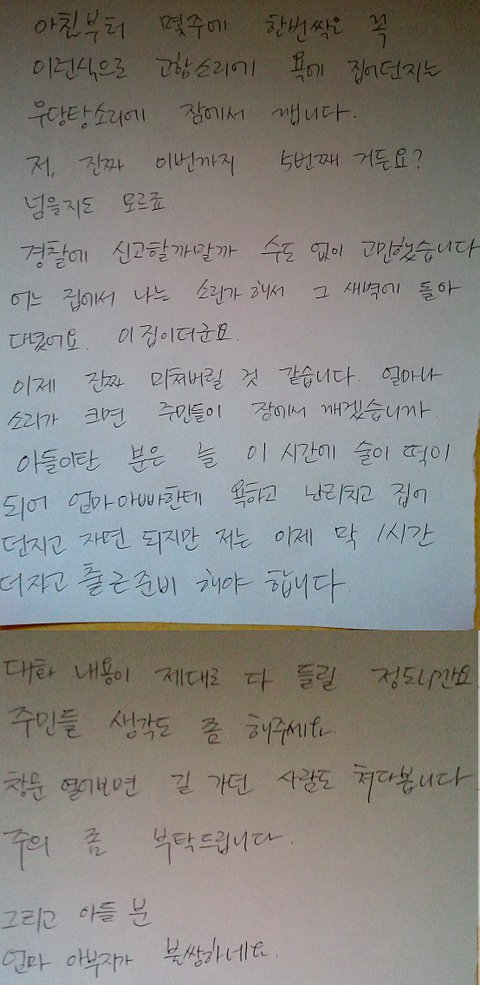 아침부터 몇주에 한번씩은 꼭
이런식으로 고함소리에 욕에 집어던지는
우당탕소리에 잠에서 깹니다.
저, 진짜 이번까지 5번째 거든요?
넘을지도 모르죠.
경찰에 신고할까말까 수도 없이 고민했습니다
어느 집에서 나는 소린가 해서 그 새벽에 돌아
다녔어요. 이 집이더군요.
이제 진짜 미쳐버릴 것 같습니다. 얼마나
소리가 크면 주민들이 잠에서 깨겠습니까
아들이란 분은 늘 이 시간에 술이 떡이
되어 엄마아빠한테 욕하고 난리치고 집어
던지고 자면 되지만 저는 이제 막 1시간
더자고 출근준비 해야 합니다.
대화 내용이 제대로 다 들릴 정도니깐요
주민들 생각도 좀 해주세요.
창문 열어보면 길 가던 사람도 쳐다봅니다.
주의 좀 부탁드립니다.
그리고 아들 분
엄마 아부지가 불쌍하네요.